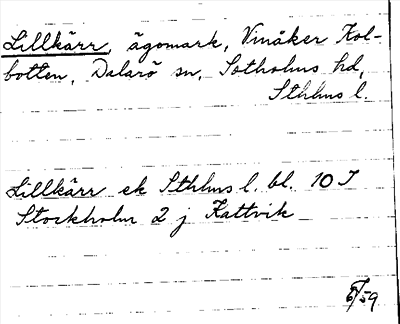 Lillkärr, ägomark, Vinåker Kol-
botten, Dalarö sn, Sotholms hd,
Sthlms l.
Lillkärr ek Sthlms l. bl. 10 I
Stockholm 2 j Kattvik
/59